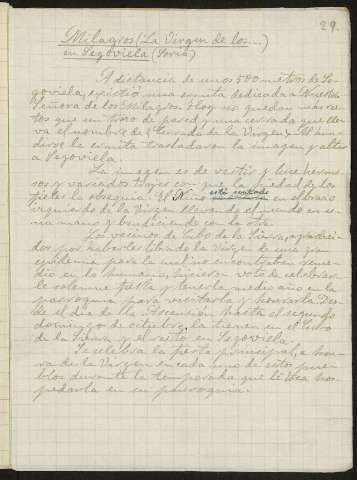 29.
Milagros (La Virgen de los...)
en Segoviela (Soria)
A distancia de unos 500 metros de Se-
goviela, existió una ermita dedicada a Nuestra
Señora de los Milagros. Hoy no quedan más res-
tos que un trozo de pared y una cerrada que lle-
va el nombre de Cerrada de la Virgen. Al hun-
dirse la ermita trasladaron la imagen y altar
a Segoviela.
La imagen es de vestir y luce hermo-
sos y variados trajes con que la piedad de los
fieles la obsequia. El Niño está sentado en el brazo
izquierdo de la Virgen llevando el mundo en
una mano y bendiciendo con la otra.
Los vecinos de Cubo de la Sierra, agradeci-
dos por haberles librado la Virgen de una gran
epidemia para la cual no encontraban reme-
dio en lo humano, hicieron voto de celebrar-
le solemne fiesta y tenerla medio año en la
parroquia para visitarla y honrarla. Des-
de el día de la Ascensión hasta el segundo
domingo de octubre, la tienen en el Cubo
de la Sierra y el resto en Segoviela.
Se celebra la fiesta principal, a hon-
ra de la Virgen en cada uno de estos pue-
blos durante la temporada que le toca hos-
pedarla en su parroquia.